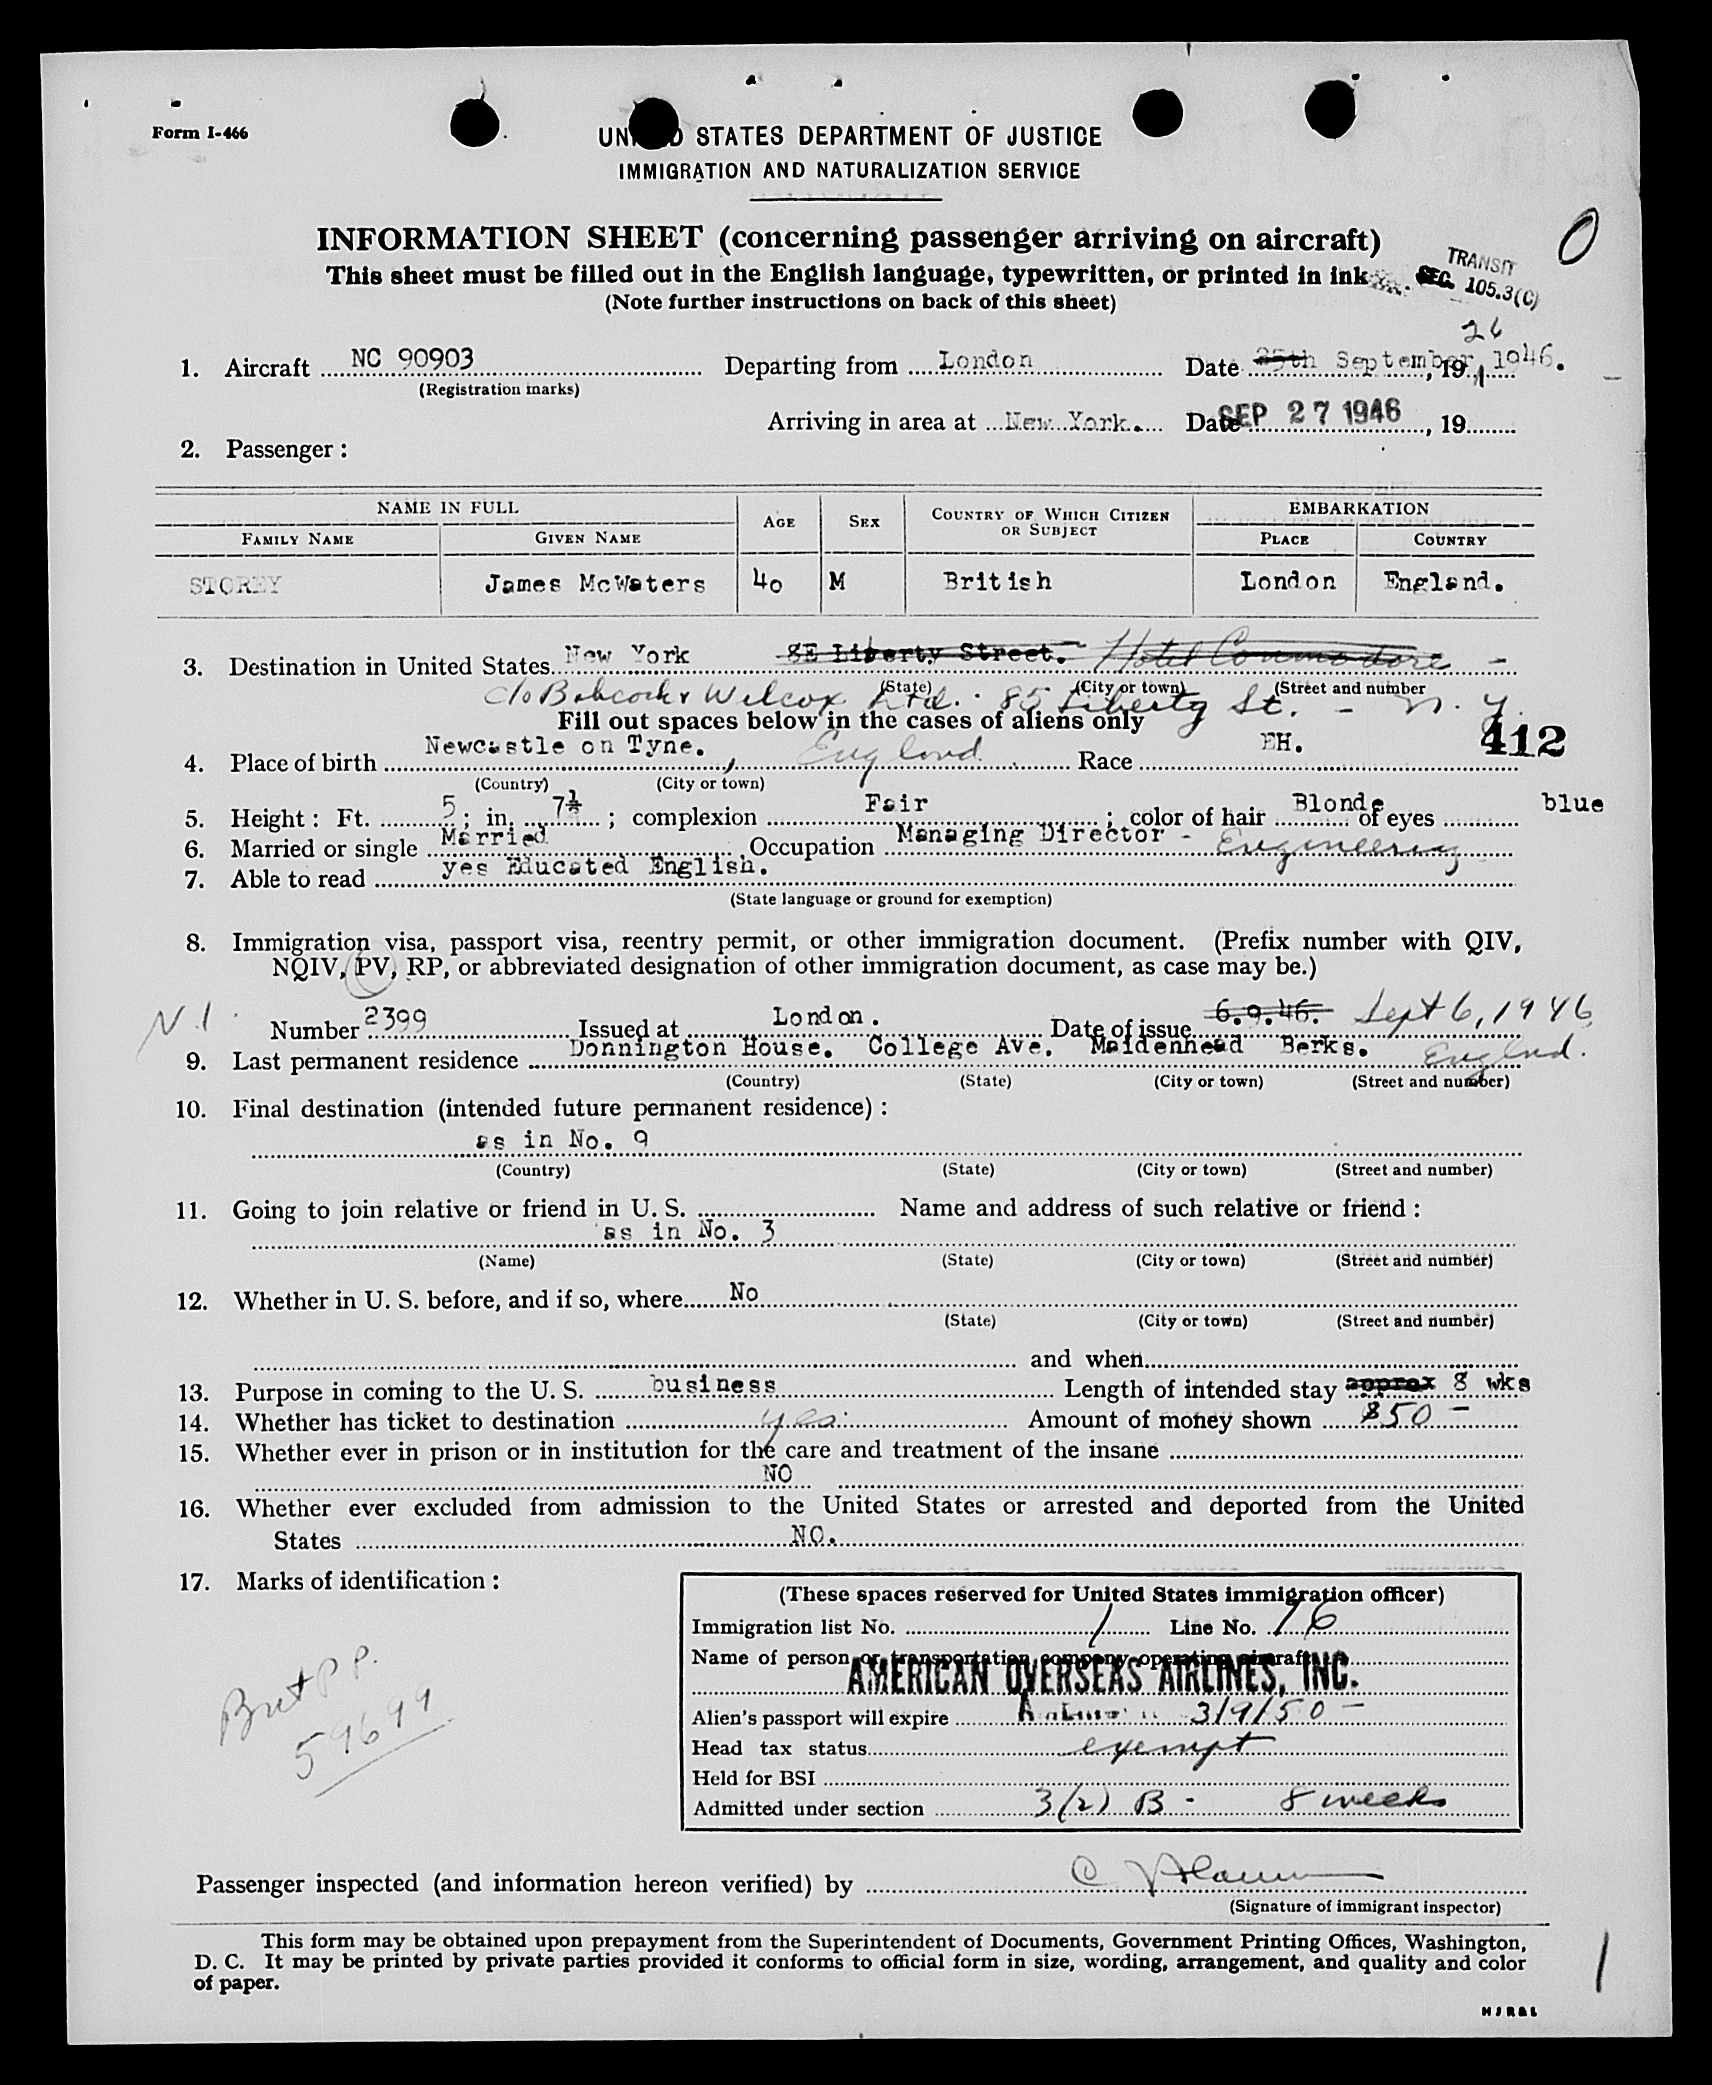 Form I-466
UNITED STATES DEPARTMENT OF JUSTICE
IMMIGRATION AND NATURALIZATION SERVICE
0
INFORMATION SHEET (concerning passenger arriving on aircraft)
This sheet must be filled out in the English language, typewritten, or printed in ink.
TRANSIT
SEC. 105.3(C)
(Note further instructions on back of this sheet)
26
1. Aircraft NC 90903 Departing from London Date 25th September, 19 1946.
(Registration marks)
Arriving in area at New York. Date SEP 27 1946, 19
2. Passenger:
NAME IN FULL AGE SEX COUNTRY OF WHICH CITIZEN OR SUBJECT EMBARKATION
FAMILY NAME GIVEN NAME PLACE COUNTRY
STOREY James McWaters 40 M British London England.
3. Destination in United States New York 8E Liberty Street. Hotel Commodore -
(State) (City or town) (Street and number
c/o Babcock & Wilcox Ltd. - 85 Liberty St. - N. Y.
Fill out spaces below in the cases of aliens only
412
4. Place of birth Newcastle on Tyne., England Race EH.
(Country) (City or town)
5. Height: Ft. 5; in. 7½; complexion Fair; color of hair Blonde of eyes blue
6. Married or single Married Occupation Managing Director - Engineering
7. Able to read yes Educated English.
(State language or ground for exemption)
8. Immigration visa, passport visa, reentry permit, or other immigration document. (Prefix number with QIV,
NQIV, PV, RP, or abbreviated designation of other immigration document, as case may be.)
N.I. Number 2399 Issued at London. Date of issue 6.9.46. Sept 6, 1946
9. Last permanent residence Donnington House. College Ave. Maidenhead Berks. England.
(Country) (State) (City or town) (Street and number)
10. Final destination (intended future permanent residence):
as in No. 9
(Country) (State) (City or town) (Street and number)
11. Going to join relative or friend in U. S. Name and address of such relative or friend:
as in No. 3
(Name) (State) (City or town) (Street and number)
12. Whether in U. S. before, and if so, where No
(State) (City or town) (Street and number)
and when
13. Purpose in coming to the U. S. business Length of intended stay approx 8 wks
14. Whether has ticket to destination yes. Amount of money shown $50 -
15. Whether ever in prison or in institution for the care and treatment of the insane
NO
16. Whether ever excluded from admission to the United States or arrested and deported from the United
States NO.
17. Marks of identification:
Brit P.P.
59699
(These spaces reserved for United States immigration officer)
Immigration list No. 1 Line No. 16
Name of person or transportation company operating aircraft
AMERICAN OVERSEAS AIRLINES, INC.
Alien's passport will expire 3/9/50 -
Head tax status exempt
Held for BSI
Admitted under section 3(2) B - 8 weeks
Passenger inspected (and information hereon verified) by
(Signature of immigrant inspector)
This form may be obtained upon prepayment from the Superintendent of Documents, Government Printing Offices, Washington,
D. C. It may be printed by private parties provided it conforms to official form in size, wording, arrangement, and quality and color
of paper.
1